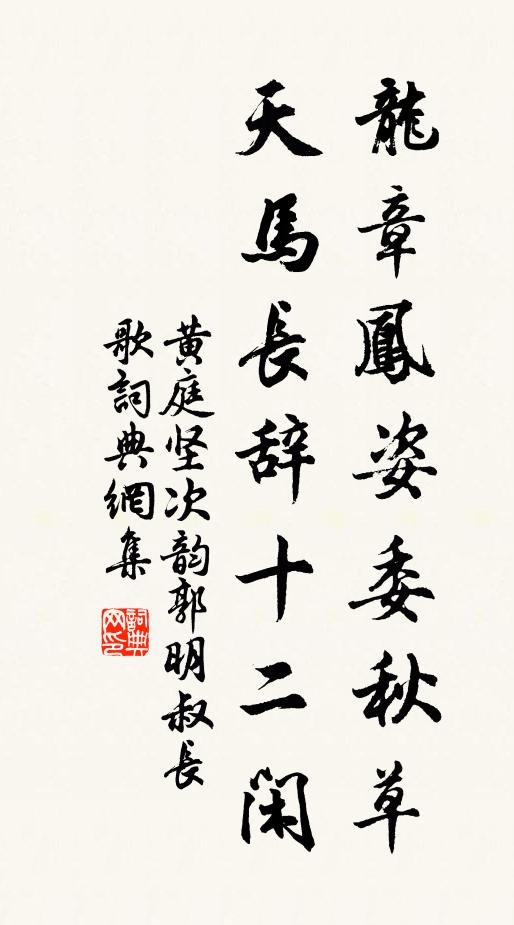 龍章鳳姿委秋草
天馬長辞十二閑
黄庭坚次韵郭明叔長
歌詞典網集
詞典网印